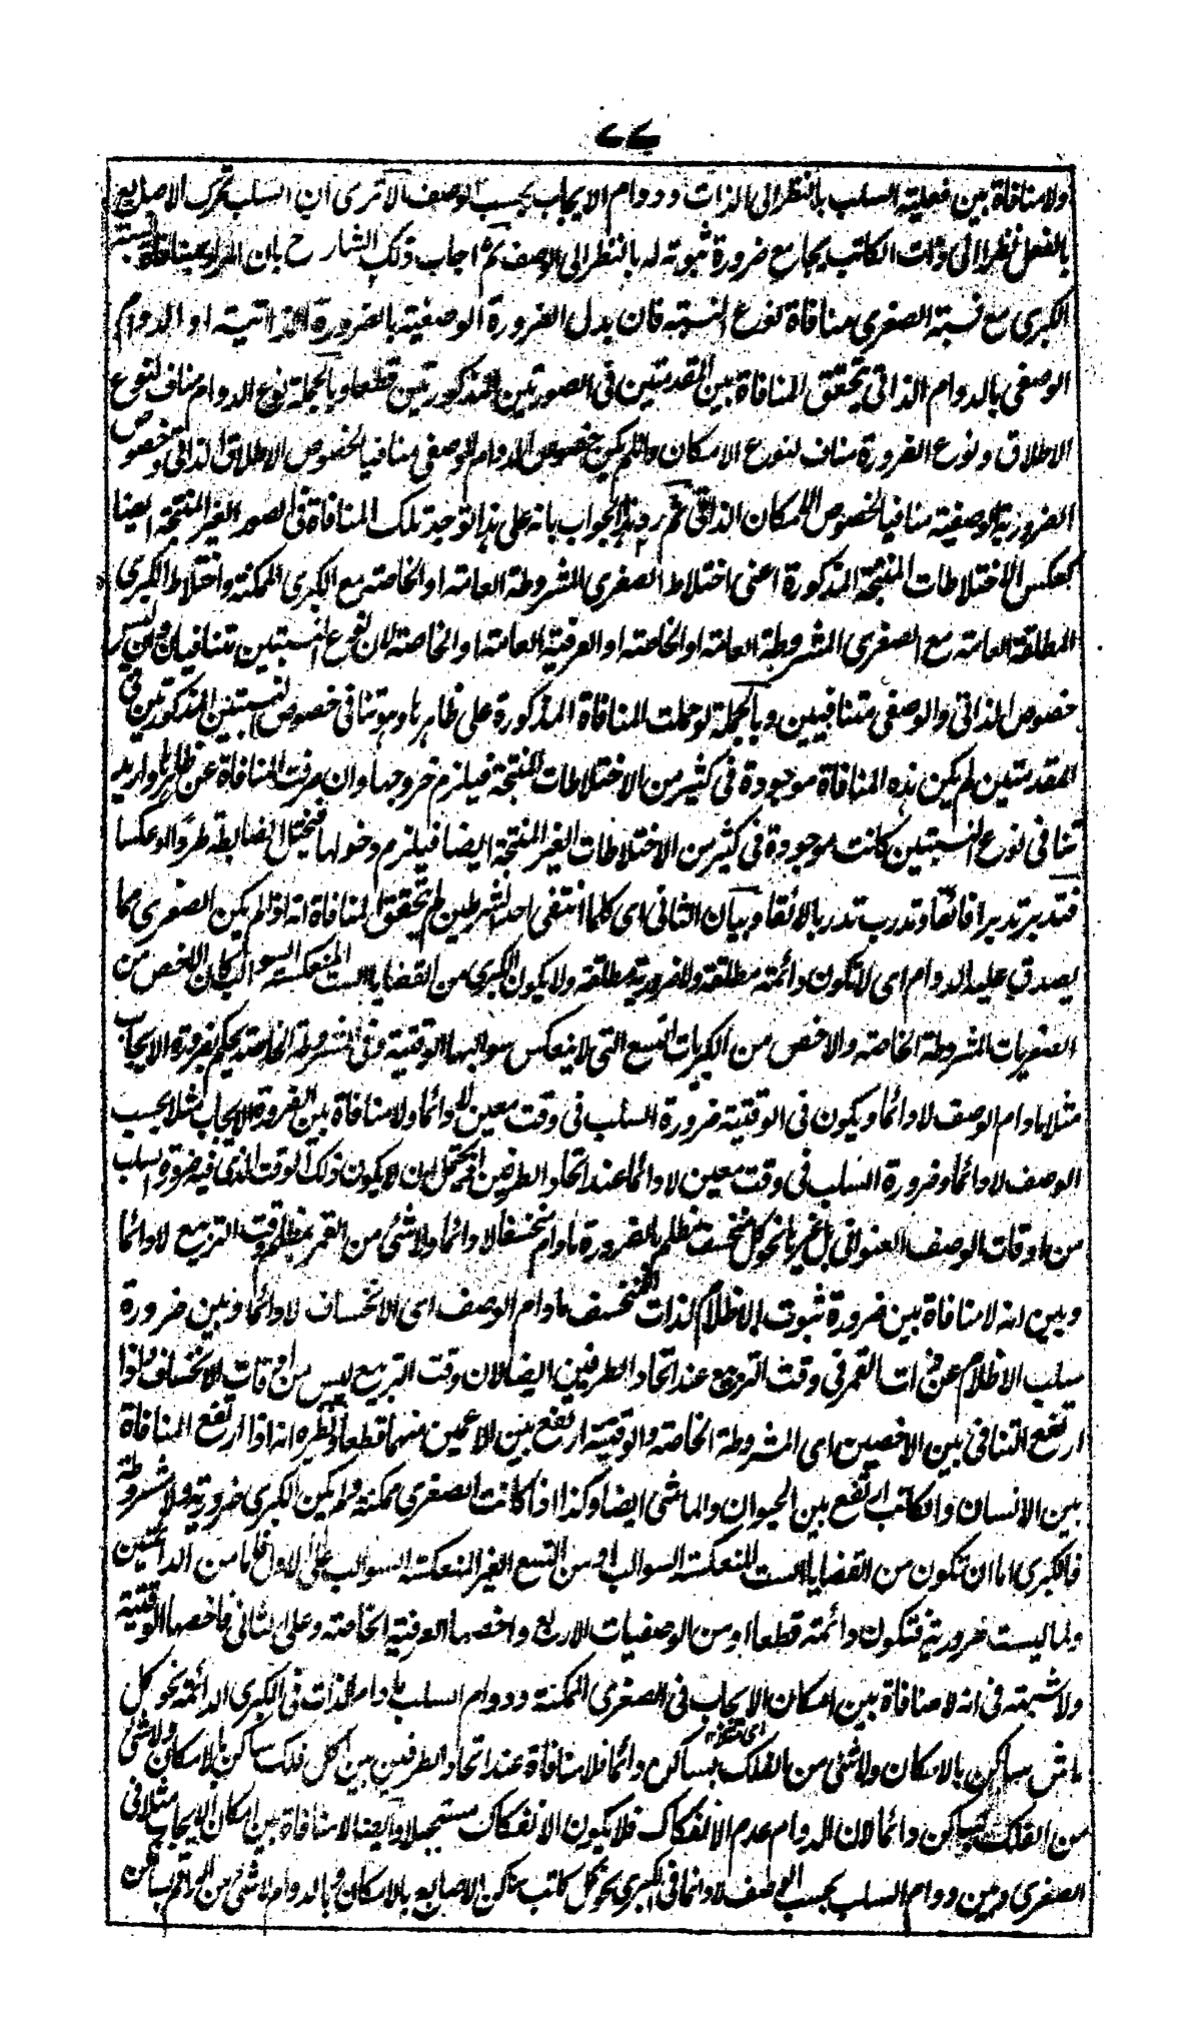 ٧٧
ولا منافاة بين فعلية السلب بالنظر الى الذات ودوام الايجاب بحسب الوصف الا ترى ان السلب تحرك الاصابع
بالفعل نظرا الى ذات الكاتب يجامع ضرورة ثبوته له بالنظر الى الوصف ثم اجاب ذلك الشارح بان المراد بمنافاة نسبة
الكبرى مع نسبة الصغرى منافاة نوع النسبة فان بدل الضرورة الوصفية بالضرورة الذاتية او الدوام
الوصفى بالدوام الذاتى يتحقق المنافاة بين المقدمتين فى الصورتين المذكورتين قطعا وبالجملة نوع الدوام مناف لنوع
الاطلاق ونوع الضرورة مناف لنوع الامكان وان لم يكن خصوص الدوام الوصفى منافيا لخصوص الاطلاق الذاتى وخصوص
الضرورية الوصفية منافيا لخصوص الامكان الذاتى ثم رد هذا الجواب بانه على هذا توجد تلك المنافاة فى الصور الغير المنتجة ايضا
كعكس الاختلاطات المنتجة المذكورة اعنى اختلاط الصغرى المشروطة العامة او الخاصة مع الكبرى الممكنة واختلاط الكبرى
المطلقة العامة مع الصغرى المشروطة العامة او الخاصة او العرفية العامة او الخاصة لان نوع النسبتين متنافيان وان ليس
خصوص الذاتى والوصفى متنافيين وبالجملة لو حملت المنافاة المذكورة على ظاهرها وهو تنافى خصوص النسبتين المذكورتين فى
المقدمتين لم يكن هذه المنافاة موجودة فى كثير من الاختلاطات المنتجة فيلزم خروجها وان صرفت المنافاة عن ظاهرها واريد
تنافى نوع النسبتين كانت موجودة فى كثير من الاختلاطات الغير المنتجة ايضا فيلزم دخولها فيختل الضابطة طردا او عكسا
فتدبر تدبرا فائقا وتدرب تدربا لائقا وبيان الثانى اى كلما انتفى احد الشرطين لم يتحقق المنافاة انه اذا لم يكن الصغرى مما
يصدق عليه الدوام اى لا تكون دائمة مطلقة ولا ضرورية مطلقة ولا يكون الكبرى من القضايا الست المنعكسة السوالب كان الاخص من
الصغريات المشروطة الخاصة والاخص من الكبريات التسع التى لا ينعكس سوالبها الوقتية وفى المشروطة الخاصة يحكم بضرورة الايجاب
مثلا ما دام الوصف لا دائما ويكون فى الوقتية ضرورة السلب فى وقت معين لا دائما ولا منافاة بين ضرورة الايجاب مثلا بحسب
الوصف لا دائما وضرورة السلب فى وقت معين لا دائما عند اتحاد الطرفين اذ يحتمل ان لا يكون ذلك الوقت الذى فيه ضرورة السلب
من اوقات الوصف العنوانى بل غيرها نحو كل منخسف مظلم بالضرورة ما دام منخسفا لا دائما ولا شئ من القمر بمظلم وقت التربيع لا دائما
وبين انه لا منافاة بين ضرورة ثبوت الاظلام لذات المنخسف ما دام الوصف اى الانخساف لا دائما وبين ضرورة
سلب الاظلام عن ذات القمر فى وقت التربيع عند اتحاد الطرفين ايضا لان وقت التربيع ليس من اوقات الانخساف فاذا
ارتفع التنافى بين الاخصين اى المشروطة الخاصة والوقتية ارتفع بين الاعمين منهما قطعا ونظيره انه اذا ارتفع المنافاة
بين الانسان والكاتب ارتفع بين الحيوان والماشى ايضا وكذا اذا كانت الصغرى ممكنة ولم يكن الكبرى ضرورية ولا مشروطة
فالكبرى اما ان تكون من القضايا الست المنعكسة السوالب او من التسع الغير المنعكسة السوالب على الاول اما من الدائمتين
ولما ليست ضرورية فتكون دائمة قطعا او من الوصفيات الاربع واخصها العرفية الخاصة وعلى الثانى فاخصها الوقتية
ولا شبهة فى انه لا منافاة بين امكان الايجاب فى الصغرى الممكنة ودوام السلب ما دام الذات فى الكبرى الدائمة نحو كل
ماش ساكن بالامكان ولا شئ من الفلك بساكن دائما فلا منافاة عند اتحاد الطرفين بين كل فلك ساكن بالامكان ولا شئ
من الفلك بساكن دائما لان الدوام عدم الانفكاك فلا يكون الانفكاك مستحيلا وايضا لا منافاة بين امكان الايجاب مثلا فى
الصغرى وبين دوام السلب بحسب الوصف لا دائما فى الكبرى نحو كل كاتب ساكن الاصابع بالامكان وبالدوام لا شئ من الراقم بساكن